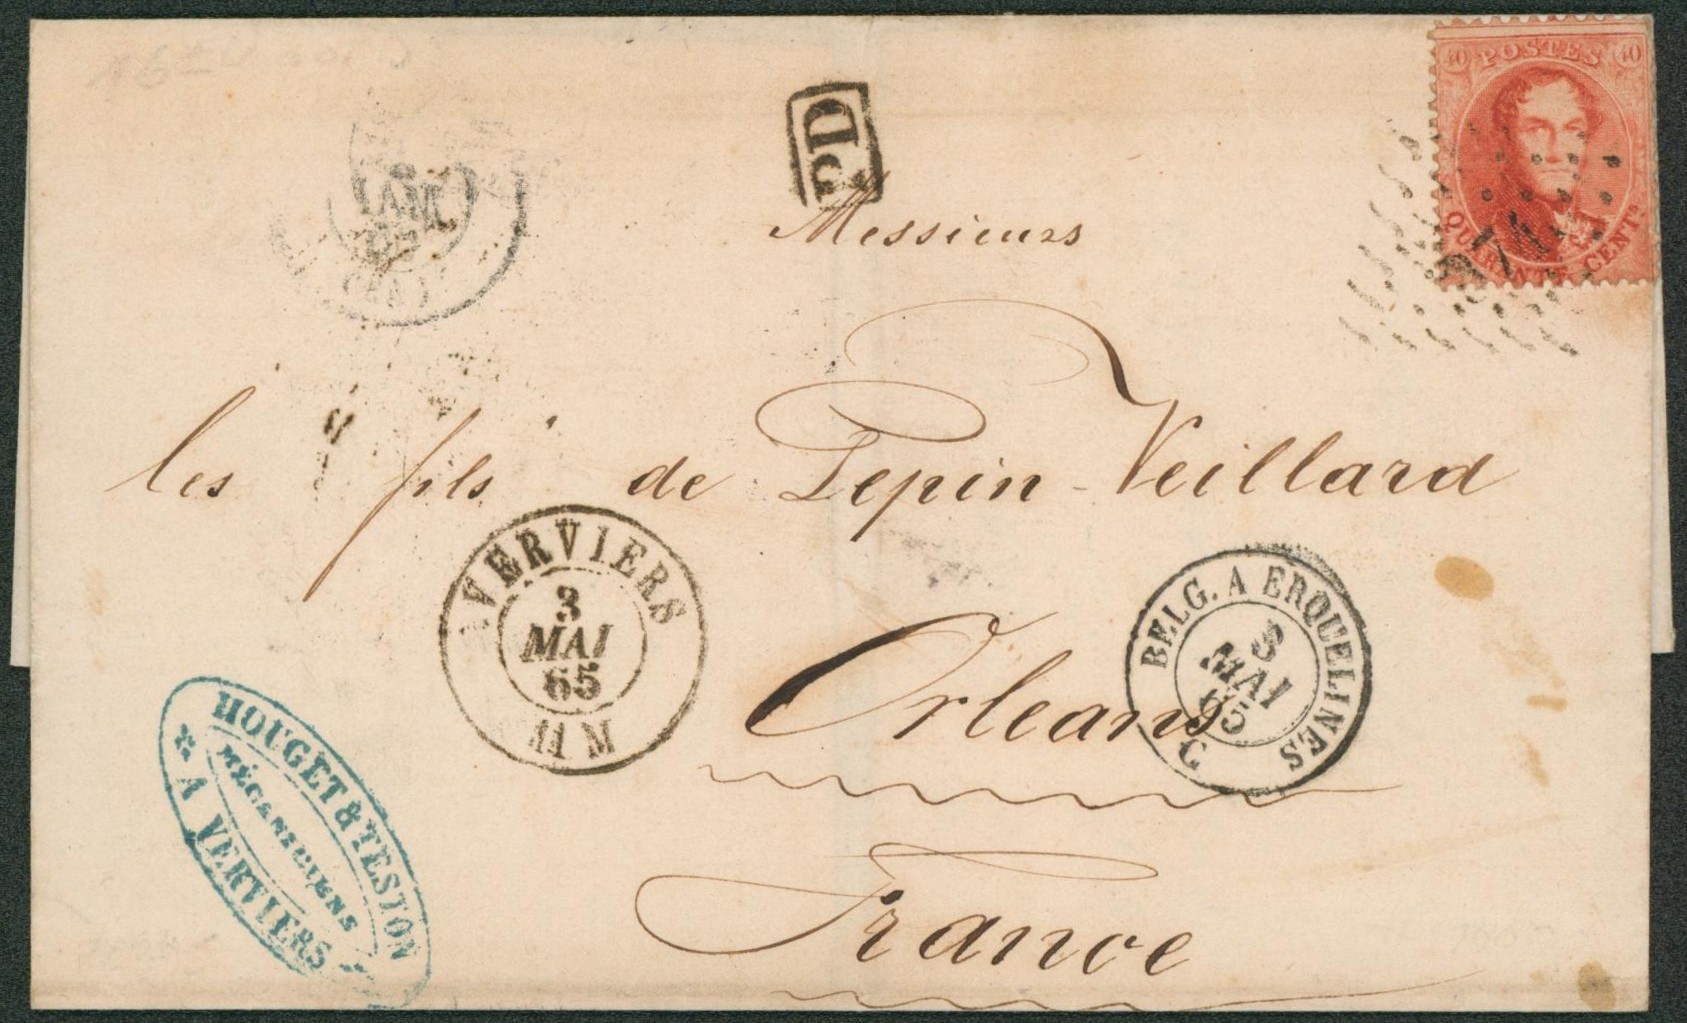 40 POSTES 40
QUARANTE CENTˢ
PD
Messieurs
les fils de Pepin-Veillard
Orleans
France
VERVIERS
3
MAI
65
11 M
BELG. A ERQUELINES
3
MAI
65
C
HOUGET & TESTON
MÉCANICIENS
A VERVIERS